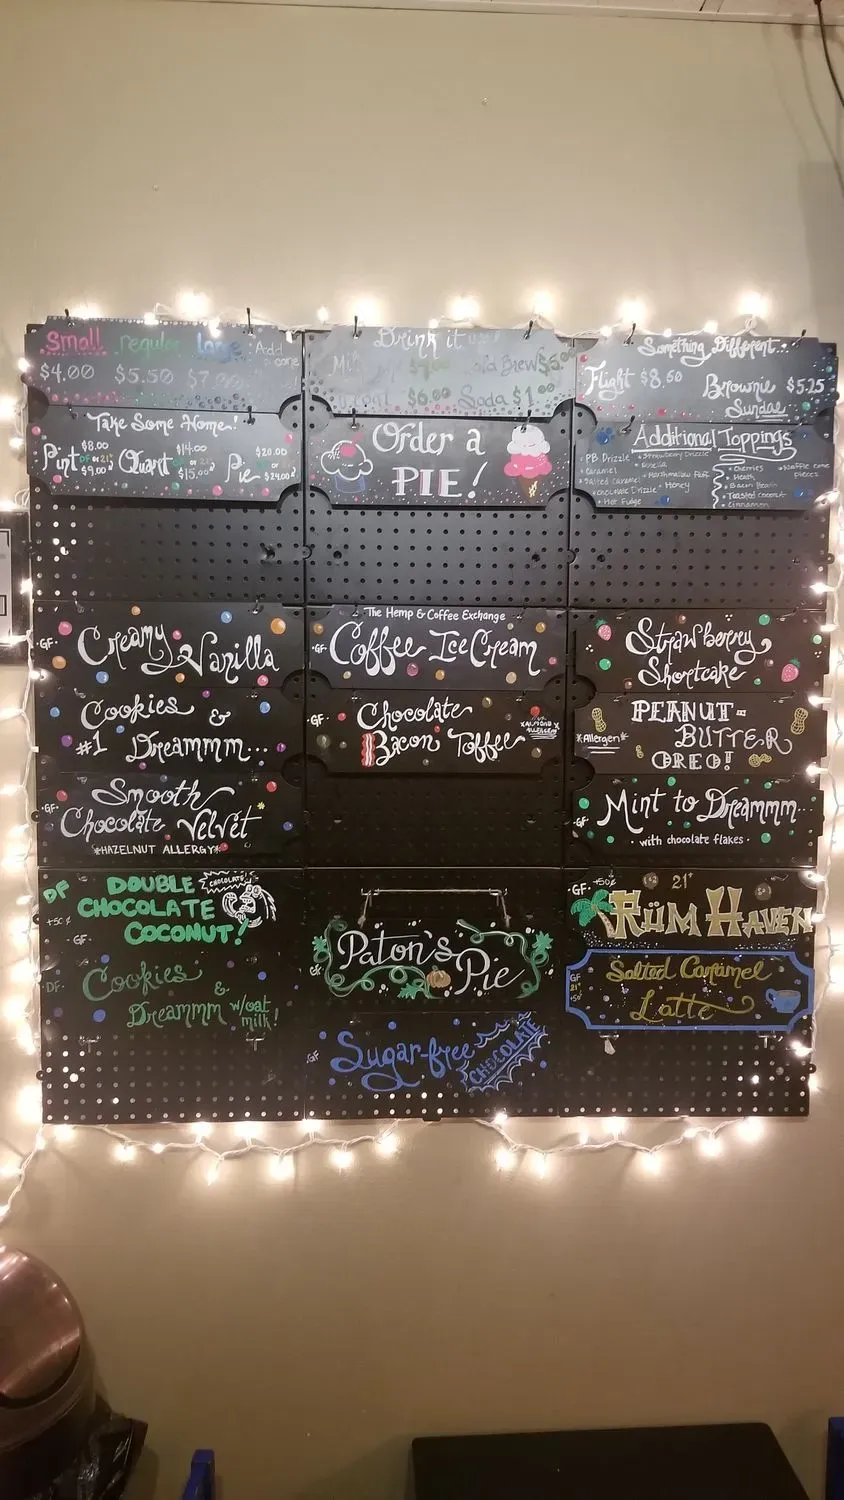 Small regular large Add
a cone
$4.00 $5.50
Take Some Home!
Pint $8.00 DF or 21+ $9.00 Quart $14.00 $15.00 Pie $20.00 or $24.00
Drink it
Cold Brew $5.00
$6.00 Soda $1.00
Order a
PIE!
Something Different...
Flight $8.50
Brownie $5.25
Sundae
Additional Toppings
PB Drizzle
Caramel
Salted Caramel
Chocolate Drizzle
Hot Fudge
Strawberry Drizzle
Marshmallow Fluff
Honey
Cherries
Heath
Toasted coconut
Cinnamon
Waffle cone
pieces
GF Creamy Vanilla
Cookies &
#1 Dreammm...
GF Smooth
Chocolate Velvet
*HAZELNUT ALLERGY*
The Hemp & Coffee Exchange
GF Coffee Ice Cream
GF Chocolate
Bacon Toffee
*ALMOND
ALLERGY*
Strawberry
Shortcake
PEANUT-
*Allergen* BUTTER
OREO!
GF Mint to Dreammm...
· with chocolate flakes ·
DF DOUBLE CHOCOLATE!
+50¢ CHOCOLATE
GF COCONUT!
DF Cookies &
Dreammm w/oat
milk!
Paton's
GF Pie
GF Sugar-free
CHOCOLATE
GF +50¢ 21+
RÜM HAVEN
GF Salted Caramel
21+ Latte